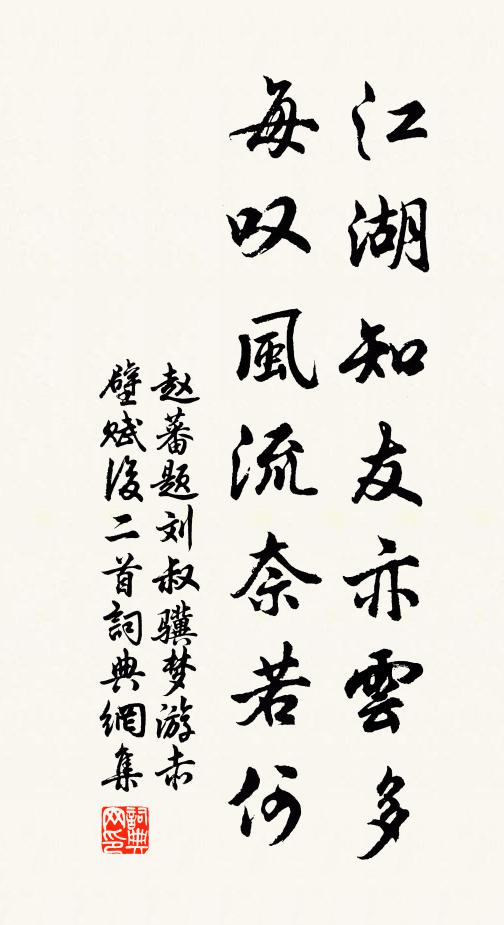 江湖知友亦雲多
每叹風流奈若何
赵蕃题刘叔骥梦游赤
壁赋後二首詞典網集
詞典网印